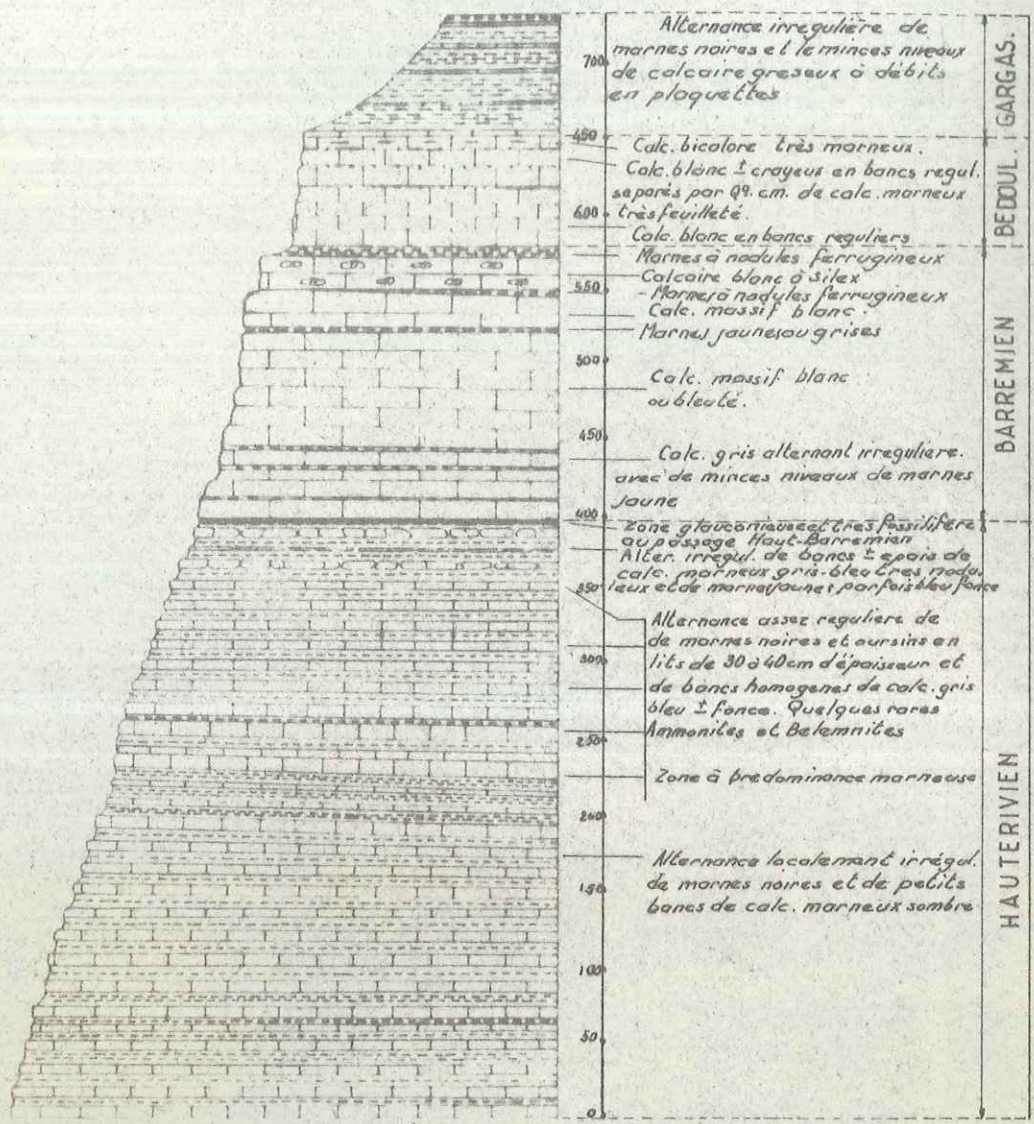 Alternance irregulière de
marnes noires et le minces niveaux
de calcaire greseux à débits
en plaquettes
Calc. bicolore très marneux.
Calc. blanc ± crayeux en bancs regul.
separés par Q9. cm. de calc. marneux
très feuilleté.
Calc. blanc en bancs reguliers
Marnes à nodules ferrugineux
Calcaire blanc à Silex
- Marnes à nodules ferrugineux
Calc. massif blanc.
Marnes jaunes ou grises
Calc. massif blanc
ou bleuté.
Calc. gris alternant irreguliere.
avec de minces niveaux de marnes
jaune
Zone glauconieuse et très fossilifère
au passage Haut-Barremien
Alter. irregul. de bancs ± epais de
calc. marneux gris-bleu très nodu.
leux et de marne jaunes parfois bleu foncé
Alternance assez reguliere de
de marnes noires et oursins en
lits de 30 à 40cm d'épaisseur et
de bancs homogenes de calc. gris
bleu ± fonce. Quelques rares
Ammonites et Belemnites
Zone à predominance marneuse
Alternance localemant irrégul.
de marnes noires et de petits
bancs de calc. marneux sombre
700
650
600
550
500
450
400
350
300
250
200
150
100
50
0
GARGAS.
BEDOUL.
BARREMIEN
HAUTERIVIEN